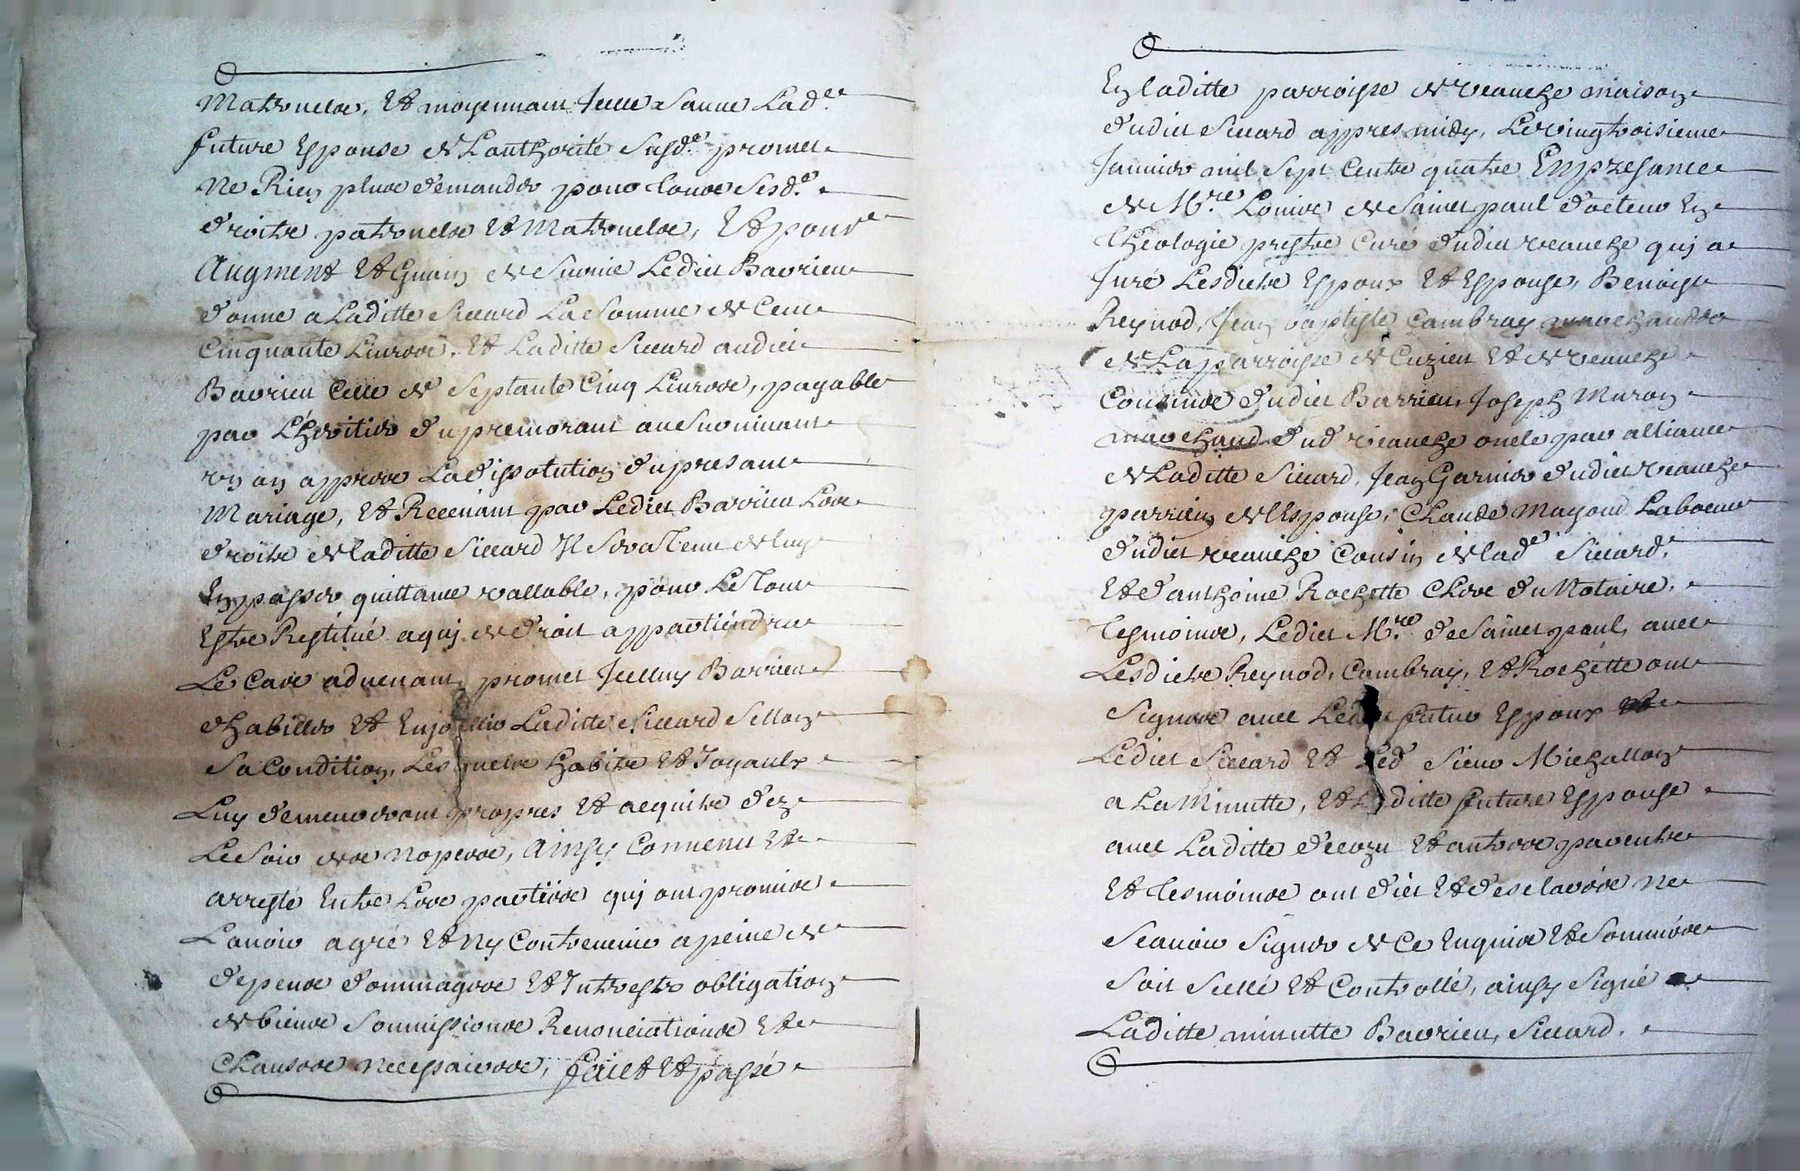 Maternels, Et moyennant Icelle somme Lad.ee
future Espouse de Lauthorité Susd.e promet
Ne Rien plus demander pour tous Sesd.s
droits paternels Et Maternels, Et pour
Augment Et Guain de Survie Ledict Barrieu
donne a Laditte Siccard La Somme de Cent
Cinquante Livres, Et Laditte Siccard audict
Barrieu Celle de Septante Cinq Livres, payable
par L'héritier du premorant au Survivant
un an appres La dissolution du presant
Mariage, Et Recevant par Ledict Barrieu Les
droits de laditte Siccard Il Sera Tenu de luy
En passer quittance vallable, pour Le Tout
Estre Restitué a quj de droit appartiendra
Le Cas advenant, promet Icelluy Barrieu
dhabiller Et Enjoller Laditte Siccard Sellon
Sa Condition, Lesquels habits Et Joyaulx
Luy demeureront propres Et acquits dez
Le Soir des Nopces, Ainsy Convenu Et
arresté Entre Les parties quj ont promis
Lavoir agré Et Ny Contrevenir a peine de
depens dommages Et Intrests obligation
de biens Soumissions Renonciations Et
Clauses Necessaires, faict Et passé
En laditte parroisse de Veauche maison
dudict Siccard appres midy, Le vingtroisieme
Janvier mil Sept Cents quatre En presance
de M.re Louis de Sainct paul docteur En
Theologie prestre Curé dudict Veauche quj a
Juré Lesdicts Espoux Et Espouse, Benoist
Reynod, Jean Baptiste Cambray marchands
de La parroisse de Cuzieu Et de Veauche
Cousins dudict Barrieu, Joseph Muron
marchand dud Veauche oncle par alliance
de Laditte Siccard, Jean Garnier dudict Veauche
parrain de lEspouse, Claude Mayoud Laboureur
dudict Veauche Cousin de lad.e Siccard,
Et d'anthoine Rochette Clerc du Notaire,
Tesmoins, Ledict M.re de Sainct paul, avec
Lesdicts Reynod, Cambray, Et Rochette ont
Signés avec Ledict futur Espoux
Ledict Siccard Et Led Sieur Michallon
a La Minutte, Et Laditte future Espouse
avec Laditte Et autres parents
Et Tesmoins ont dict Et desclarés ne
Scavoir Signer de Ce Enquis Et Sommés
Soit Scellé Et Controllé, ainsy Signé
Laditte minutte Barrieu, Siccard,